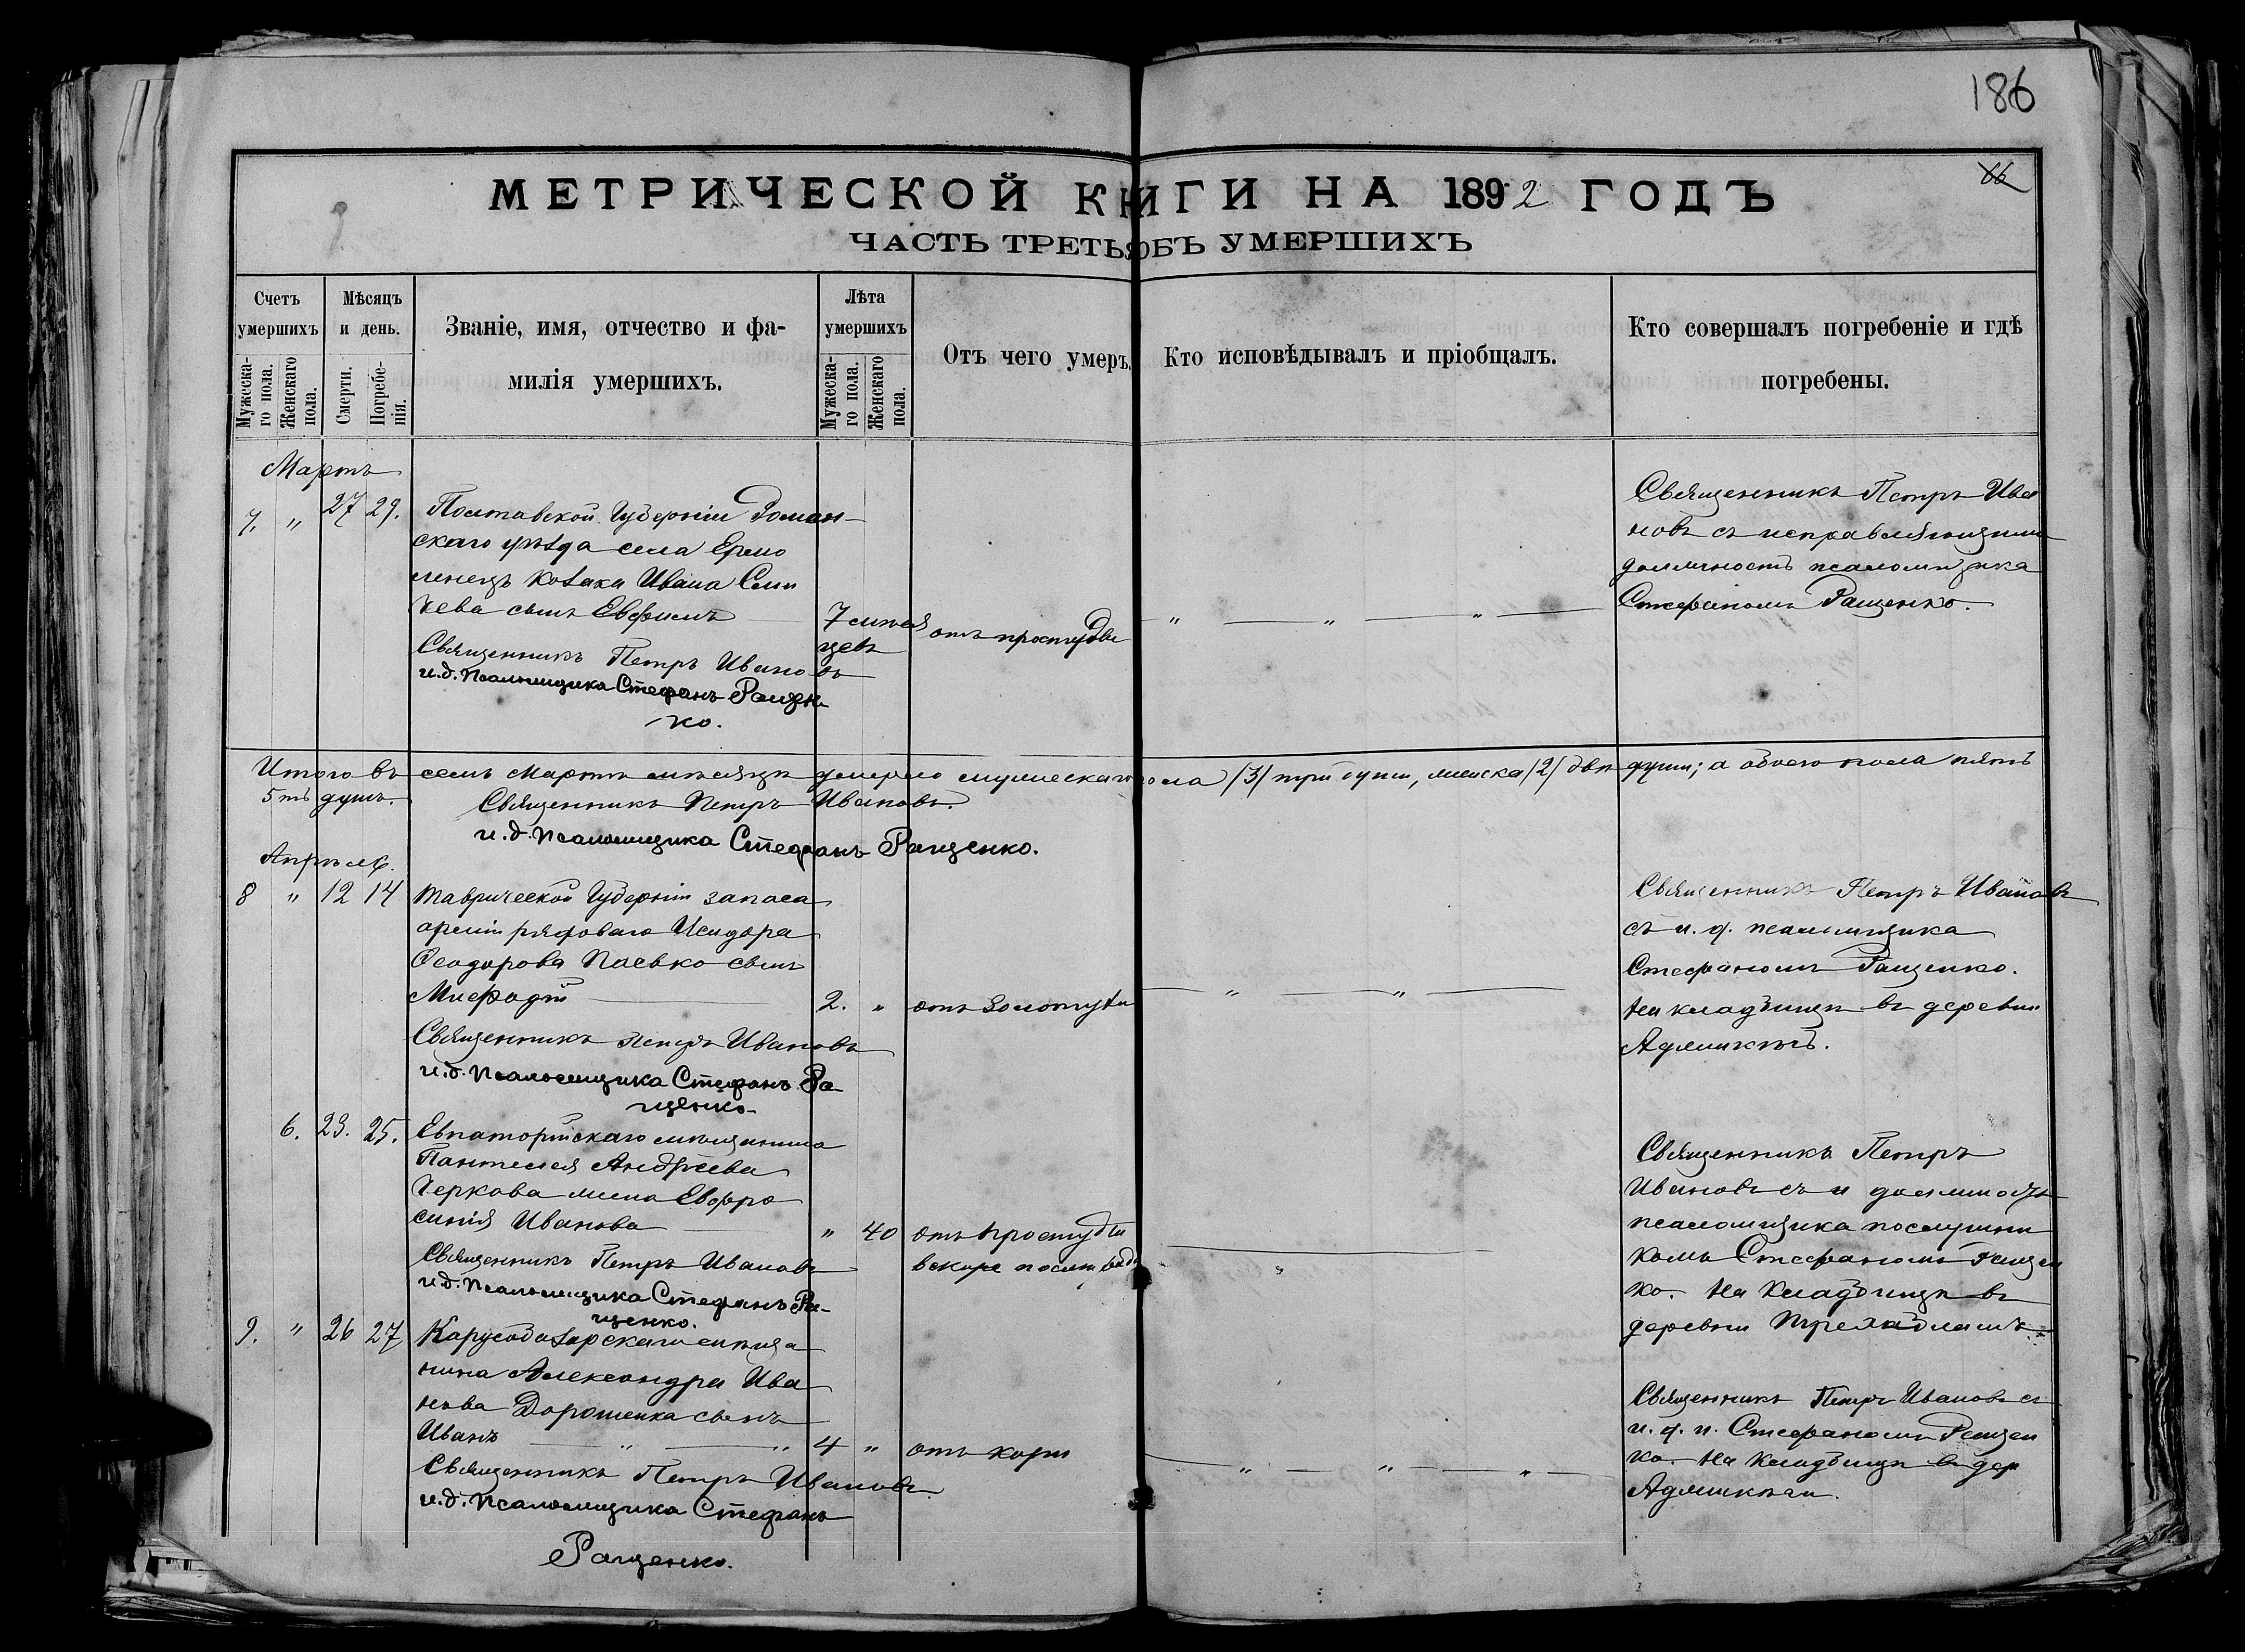 186
66
МЕТРИЧЕСКОЙ КНИГИ НА 1892 ГОДЪ
ЧАСТЬ ТРЕТЬЯ ОБЪ УМЕРШИХЪ
Счетъ умершихъ
Мужеска-го пола.
Женскаго пола.
Мѣсяцъ и день.
Смерти.
Погребе-нія.
Званіе, имя, отчество и фа-
милія умершихъ.
Лѣта умершихъ
Мужеска-го пола.
Женскаго пола.
Отъ чего умеръ.
Кто исповѣдывалъ и пріобщалъ.
Кто совершалъ погребеніе и гдѣ
погребены.
Мартъ
7. " 27 29.
Полтавской Губерніи Роман-
скаго уѣзда села
козака Ивана
сынъ Евфимъ
7 мѣся
цевъ
отъ простуды
Священникъ Петръ Ивановъ
и.д. псаломщика Стефанъ Ращен-
ко.
Священникъ Петръ Ива
новъ съ исправляющимъ
должность псаломщика
Стефаномъ Ращенко.
Итого въ семъ Мартѣ мѣсяцѣ умерло мужескаго пола /3/ три души, женска /2/ двѣ души; а обоего пола пять
5ть душъ.
Священникъ Петръ Ивановъ.
и.д. псаломщика Стефанъ Ращенко.
Апрѣль.
8 " 12 14
Таврической Губерніи запаса
арміи рядоваго Исидора
Ѳеодорова сынъ
Мефодій
2. "
отъ золотухи
Священникъ Петръ Ивановъ
и.д. псаломщика Стефанъ Ра-
щенко.
Священникъ Петръ Ивановъ
съ и. д. псаломщика
Стефаномъ Ращенко.
На кладбищѣ въ деревни
6. 23. 25.
Евпаторійскаго мѣщанина
Пантелея Андреева
Черкова жена Евфро
синія Иванова
" 40
отъ простуды
вскоре послѣ
Священникъ Петръ Ивановъ
и.д. псаломщика Стефанъ Ра-
щенко.
Священникъ Петръ
Ивановъ съ и должность
псаломщика послушни
комъ Стефаномъ Ращен
ко. На кладбищѣ въ
деревни
9. " 26 27
Карусобазарскаго мѣща
нина Александра Ива
нова Дорошенка сынъ
Иванъ
4 "
отъ кори
Священникъ Петръ Ивановъ.
и.д. псаломщика Стефанъ
Ращенко.
Священникъ Петръ Ивановъ съ
и. д. п. Стефаномъ Ращен
ко. На кладбищѣ въ дер